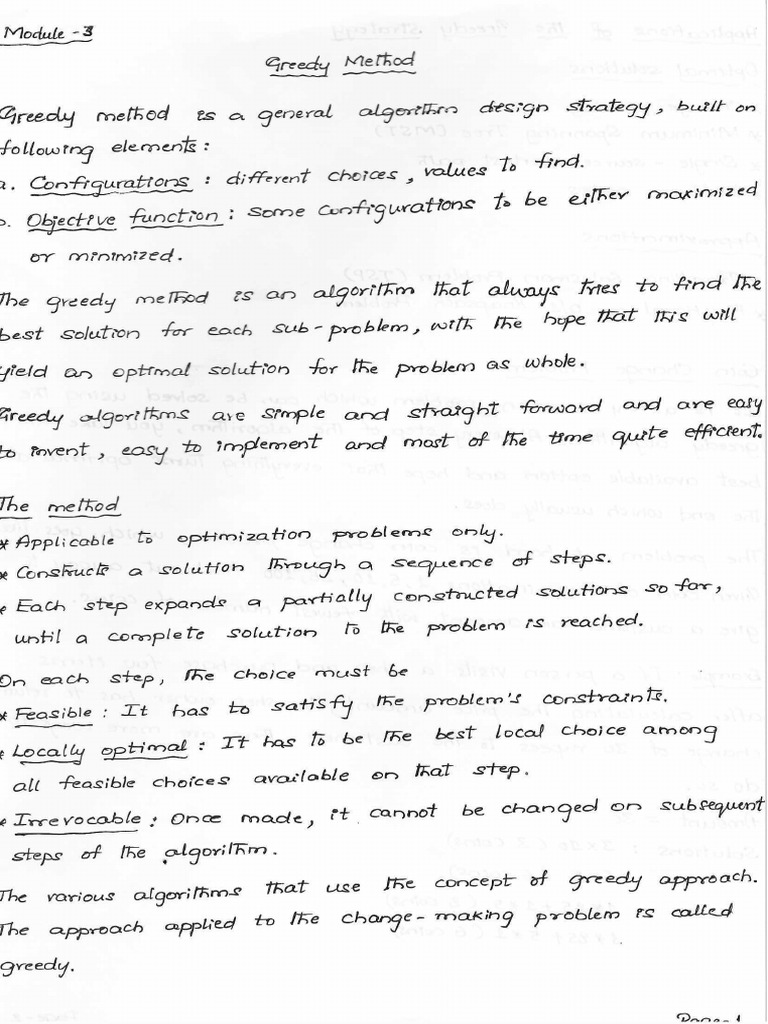 Module - 3
Greedy Method
Greedy method is a general algorithm design strategy, built on
following elements:
a. Configurations : different choices, values to find.
b. Objective function : some configurations to be either maximized
or minimized.
The greedy method is an algorithm that always tries to find the
best solution for each sub-problem, with the hope that this will
yield an optimal solution for the problem as whole.
Greedy algorithms are simple and straight forward and are easy
to invent, easy to implement and most of the time quite efficient.
The method
* Applicable to optimization problems only.
* Constructs a solution through a sequence of steps.
* Each step expands a partially constructed solutions so far,
until a complete solution to the problem is reached.
On each step, the choice must be
* Feasible : It has to satisfy the problem's constraints.
* Locally optimal : It has to be the best local choice among
all feasible choices available on that step.
* Irrevocable : Once made, it cannot be changed on subsequent
steps of the algorithm.
The various algorithms that use the concept of greedy approach.
The approach applied to the change-making problem is called
greedy.
Page-1